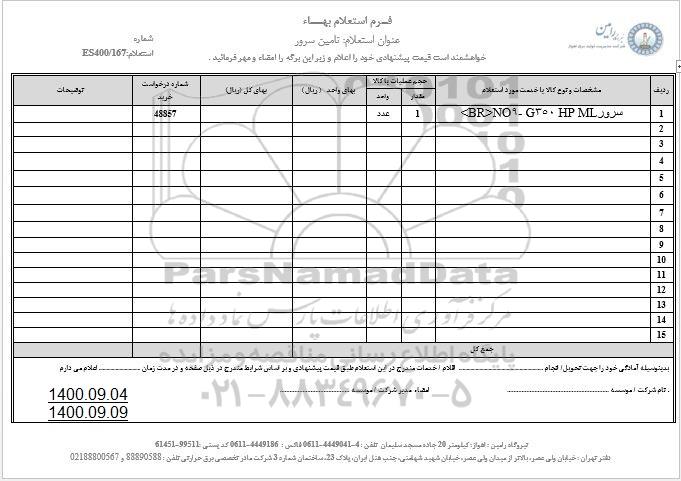 فـرم استعلام بهـاء
شماره
عنوان استعلام: تامین سرور
استعلام: ES400/167
خواهشمند است قیمت پیشنهادی خود را اعلام و زیر این برگه را امضاء و مهر فرمائید .
ردیف مشخصات و نوع کالا یا خدمت مورد استعلام حجم عملیات یا کالا بهای واحد (ریال) بهای کل (ریال) شماره درخواست خرید توضیحات
مقدار واحد
1 سرور NO۹- G۳۵۰ HP ML<BR> 1 عدد 48857
2
3
4
5
6
7
8
9
10
11
12
13
14
15
جمع کل
ParsNamadData
مرکز فرآوری اطلاعات پارس نماد داده ها
پایگاه اطلاع رسانی مناقصه و مزایده
۰۲۱-۸۸۳۴۹۶۷۰-۵
بدینوسیله آمادگی خود را جهت تحویل/ انجام ........ اقلام / خدمات مندرج در این استعلام طبق قیمت پیشنهادی و بر اساس شرایط مندرج در ذیل صفحه و در مدت زمان ........ اعلام می دارم
. نام شرکت / موسسه ........ امضاء مدیر شرکت / موسسه ........
1400.09.04
1400.09.09
نیروگاه رامین : اهواز: کیلومتر 20 جاده مسجد سلیمان تلفن : 4-4449041-0611 فاکس : 4449186-0611 کد پستی :99511-61451
دفتر تهران : خیابان ولی عصر، بالاتر از میدان ولی عصر، خیابان شهید شهامتی، جنب هتل ایران، پلاک 23، ساختمان شماره 3 شرکت مادر تخصصی برق حرارتی تلفن : 88890588 و 02188800567